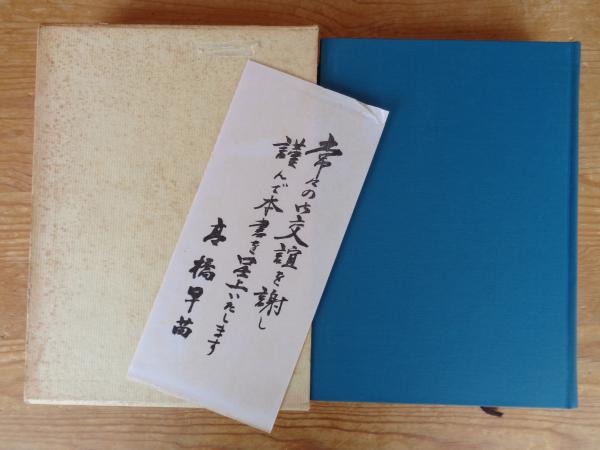 常々の御交誼を謝し
謹んで本書を呈上いたします
高橋早苗